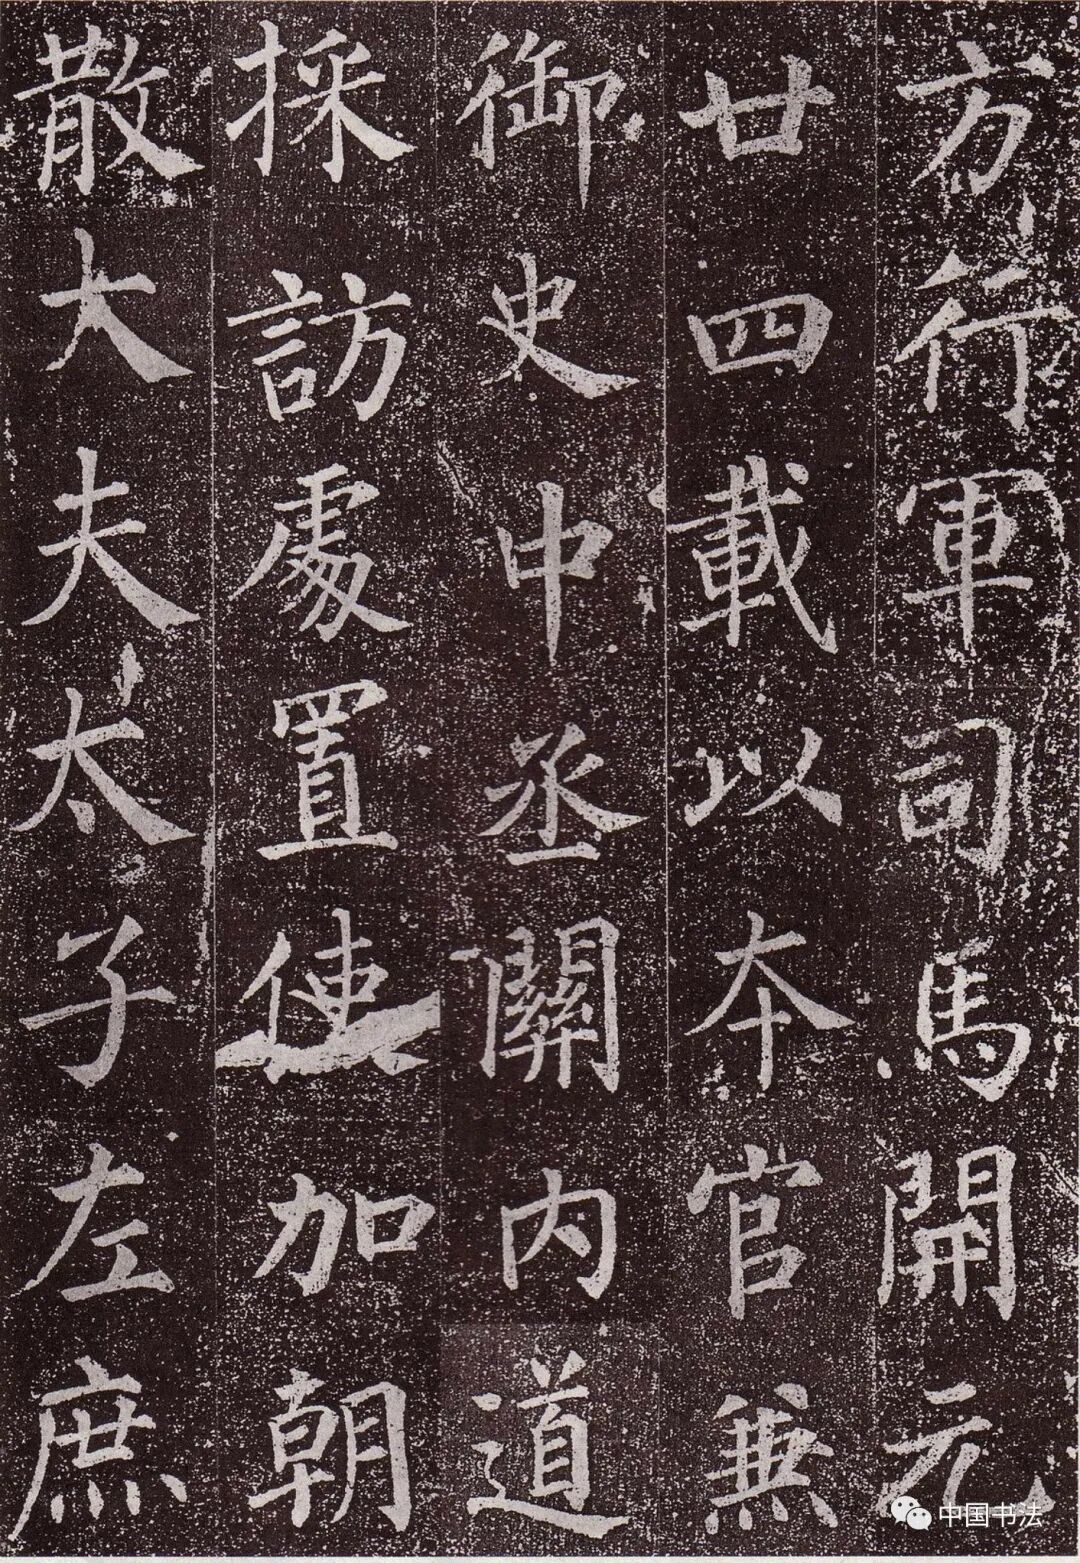 方行軍司馬開元
廿四載以本官兼
御史中丞關內道
採訪處置使加朝
散大夫太子左庶
中国书法